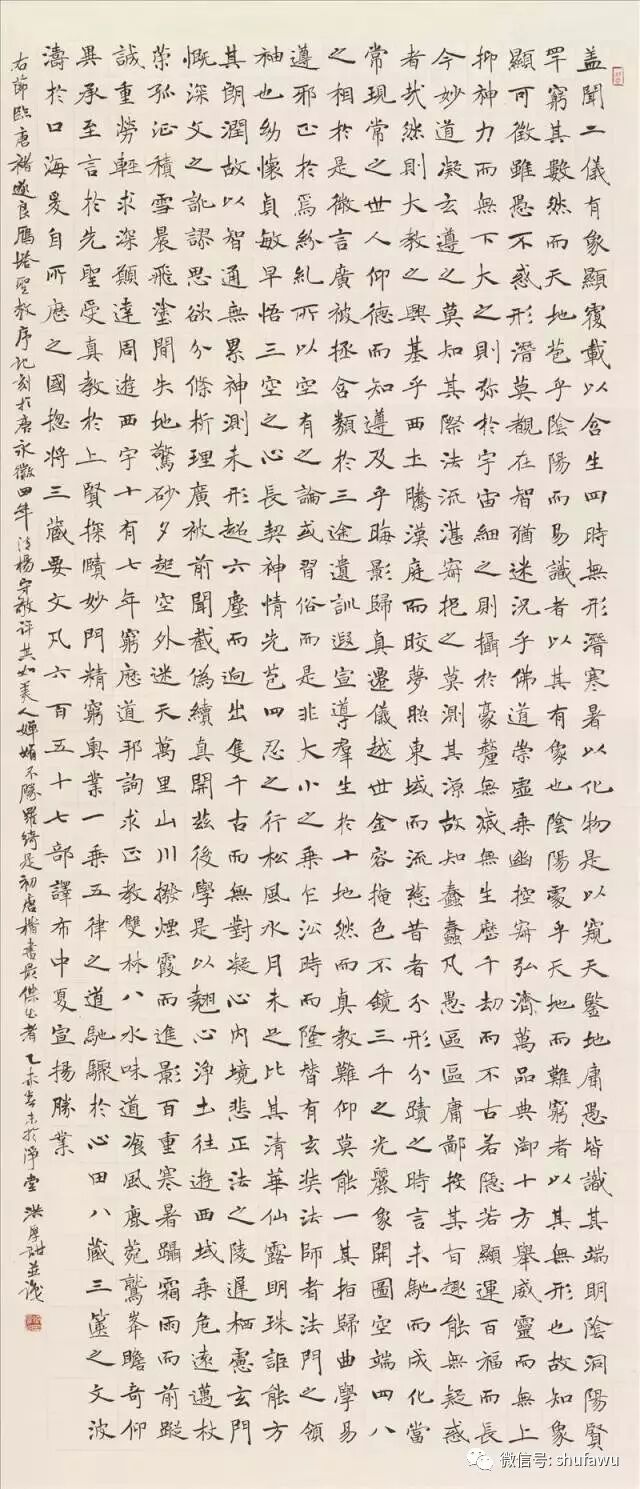 盖聞二儀有象顯覆載以含生四時無形潛寒暑以化物是以窺天鑒地庸愚皆識其端明陰洞陽賢
罕窮其數然而天地苞乎陰陽而易識者以其有象也陰陽處乎天地而難窮者以其無形也故知象
顯可徵雖愚不惑形潛莫覩在智猶迷況乎佛道崇虛乗幽控寂弘濟萬品典御十方舉威靈而無上
抑神力而無下大之則弥於宇宙細之則攝於豪釐無滅無生歷千劫而不古若隱若顯運百福而長
今妙道凝玄遵之莫知其際法流湛寂挹之莫測其源故知蠢蠢凡愚區區庸鄙投其旨趣能無疑惑
者哉然則大教之興基乎西土騰漢庭而皎夢照東域而流慈昔者分形分蹟之時言未馳而成化當
常現常之世人仰德而知遵及乎晦影歸真遷儀越世金容掩色不鏡三千之光麗象開圖空端四八
之相於是微言廣被拯含類於三途遺訓遐宣導羣生於十地然而真教難仰莫能一其指歸曲學易
遵邪正於焉紛糺所以空有之論或習俗而是非大小之乗乍沿時而隆替有玄奘法師者法門之領
袖也幼懷貞敏早悟三空之心長契神情先苞四忍之行松風水月未足比其清華仙露明珠詎能方
其朗潤故以智通無累神測未形超六塵而迥出隻千古而無對凝心內境悲正法之陵遲栖慮玄門
慨深文之訛謬思欲分條析理廣彼前聞截偽續真開茲後學是以翹心淨土往遊西域乗危遠邁杖
策孤征積雪晨飛塗間失地驚砂夕起空外迷天萬里山川撥煙霞而進影百重寒暑躡霜雨而前蹤
誠重勞輕求深願達周遊西宇十有七年窮歷道邦詢求正教雙林八水味道飡風鹿菀鷲峯瞻奇仰
異承至言於先聖受真教於上賢探賾妙門精窮奧業一乗五律之道馳驟於心田八藏三篋之文波
濤於口海爰自所歷之國揔將三藏要文凡六百五十七部譯布中夏宣揚勝業
右節臨唐褚遂良雁塔聖教序記刻於唐永徽四年清楊守敬評其如美人嬋娟不勝羅綺是初唐楷書最傑出者乙未歲末於淨堂洪厚甜並識
微信号: shufawu